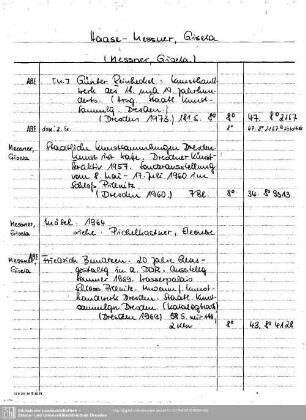 Haase-Messner, Gisela
(Messner, Gisela.)
ABE Günter Reinheckel: Kunsthand-
werk des 18. und 19. Jahrhun-
derts. (Hrsg. Staatl. Kunst-
sammlung. Dresden.)
(Dresden 1973.) 181 S. 8° 8° 47. 8° 2167
ABE dass. 2. Ex.
Messner, Gisela Staatliche Kunstsammlungen Dresden.
1957. Sonderausstellung
vom 8. Mai - 17. Juli 1960 im
Schloß Pillnitz
(Dresden 1960.) 7 Bl. 8° 34. 8° 9513
Messner, Gisela Möbel. 1964
siehe: Pichelkastner, Eleonore
Messner, Gisela ABE Friedrich Bundtzen. 20 Jahre Glas-
gestaltg in d. DDR. Ausstellg
Sommer 1969. Wasserpalais
Schloss Pillnitz. Museum f. Kunst-
handwerk Dresden. Staatl. Kunst-
sammlungen Dresden. (Katalogheft)
(Dresden 1969) 8° 43. 8° 4128